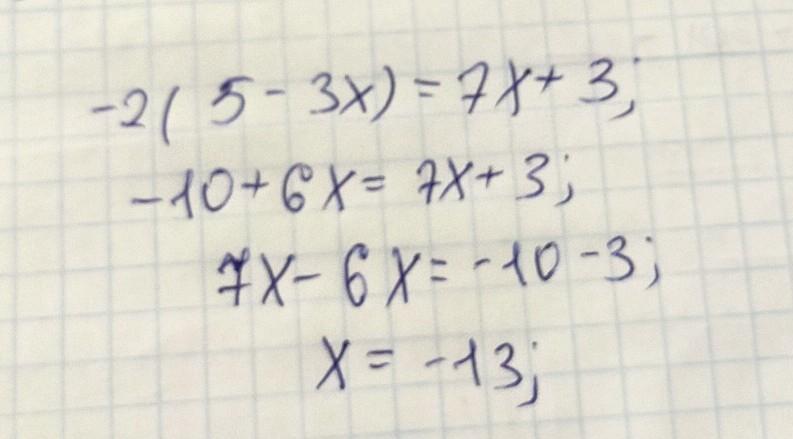 -2( 5 - 3x) = 7x + 3;
-10 + 6x = 7x + 3;
7x - 6x = -10 - 3;
x = -13;